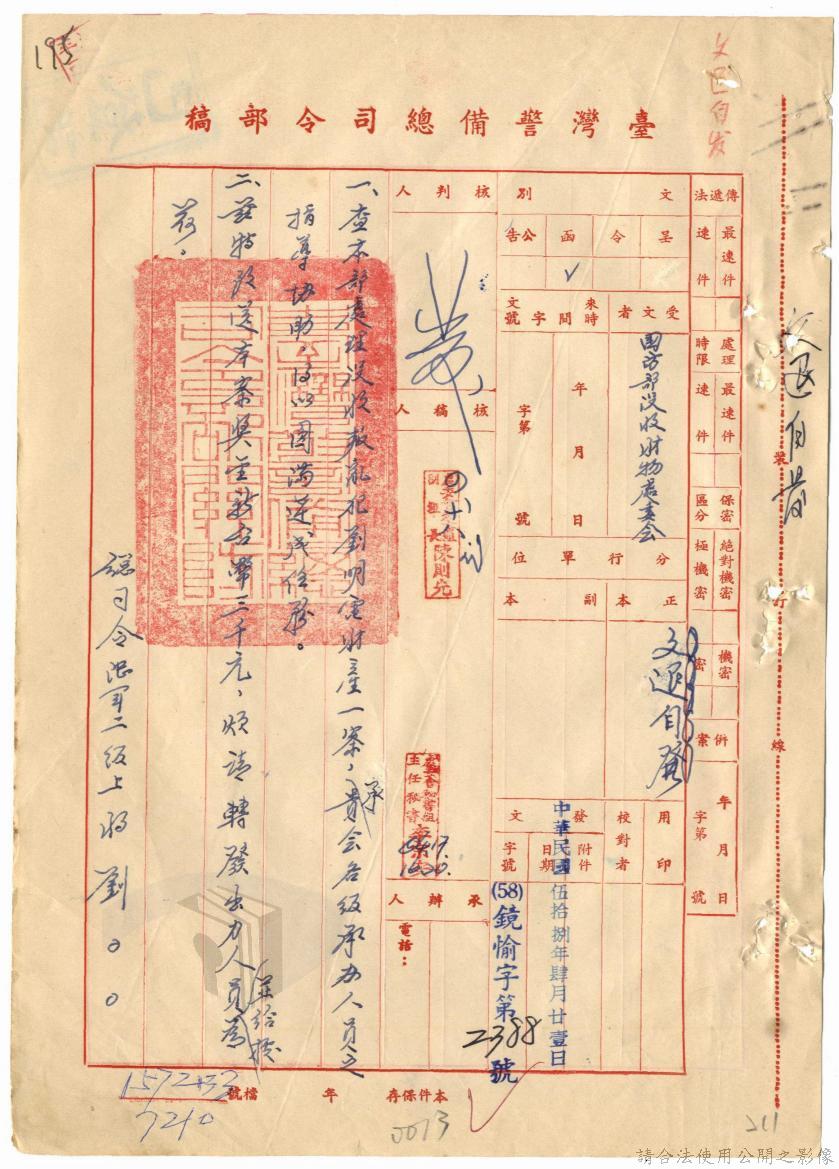 195
文退自发
臺灣警備總司令部稿
傳遞法
最速件
速件
處理時限
最速件
速件
保密區分
絕對機密
極機密
機密
密
併案
年月日
字第
號
文別
呈
令
函
公告
✓
受文者
國防部沒收財物處委會
來文
時間
字號
年月日
字第
號
分行單位
正本
副本
文退自發
用印
校對者
發文
附件
日期
字號
中華民國伍拾捌年肆月廿壹日
(58)鏡愉字第2388號
核判人
核稿人
組長
陳則堯
主任秘書
承辦人
電話：
一、查本部處理沒收叛亂犯劉明電財產一案，承貴会各級承办人員之
指導协助，得以圓滿达成任務。
二、茲特改送本案奬金新台幣三千元，煩請轉發出力人員並給據為
荷。
總司令陸軍二級上將劉○○
文退自發
裝
訂
線
本件保存
年
檔號
1572·33
7210
0013
211
請合法使用公開之影像